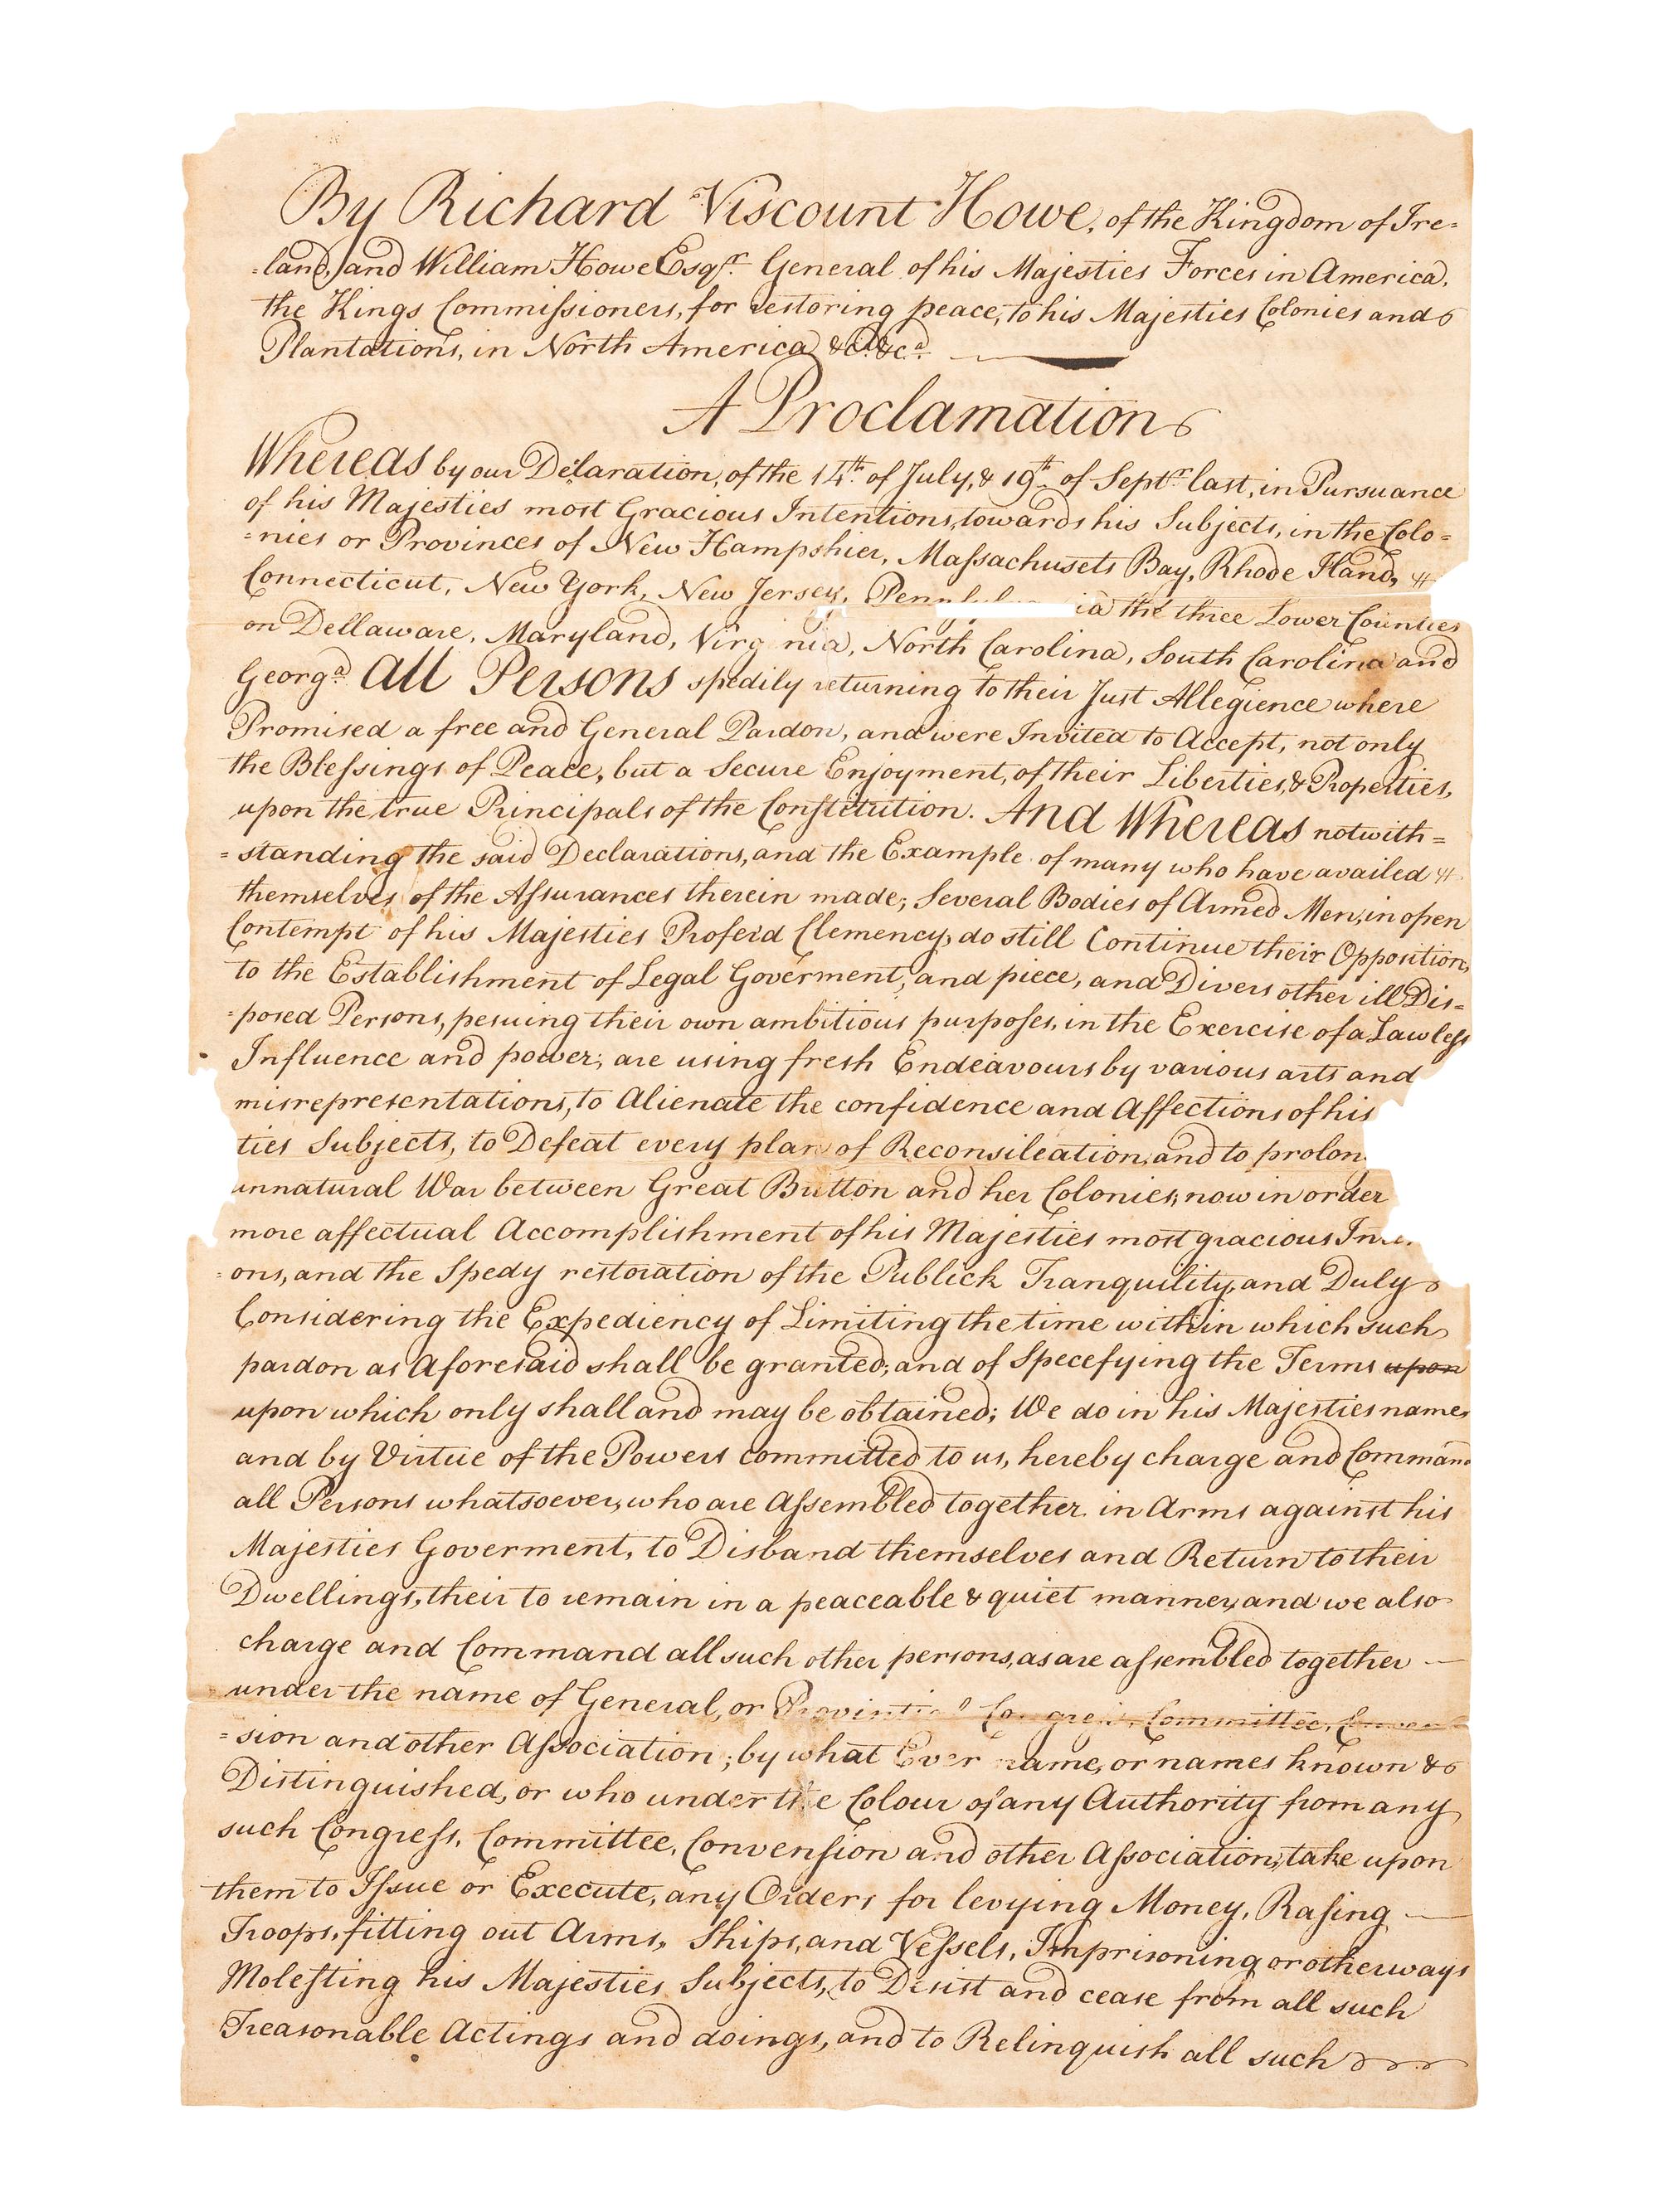 By Richard Viscount Howe, of the Kingdom of Ire=
=land, and William Howe Esqr. General of his Majesties Forces in America,
the Kings Commissioners, for restoring peace, to his Majesties Colonies and
Plantations, in North America &ca. &ca.
A Proclamation
Whereas by our Delaration, of the 14th. of July, & 19th. of Septr. last, in Pursuance
of his Majesties most Gracious Intentions, towards his Subjects, in the Colo=
=nies or Provinces of New Hampshier, Massachusets Bay, Rhode Iland,
Connecticut, New York, New Jersey, the three Lower Counties
on Dellaware, Maryland, Virginia, North Carolina, South Carolina and
Georga. All Persons spedily returning to their Just Allegience where
Promised a free and General Pardon, and were Invited to Accept, not only
the Blessings of Peace, but a Secure Enjoyment, of their Liberties, & Properties,
upon the true Principals of the Constitution. And Whereas notwith=
=standing the said Declarations, and the Example of many who have availed
themselves of the Assurances therein made; Several Bodies of Armed Men, in open
Contempt of his Majesties Proferd Clemency, do still Continue their Opposition,
to the Establishment of Legal Goverment, and piece, and Divers other ill Dis=
=posed Persons, pesuing their own ambitious purposes, in the Exercise of a Lawless
Influence and power; are using fresh Endeavours by various arts and
misrepresentations, to Alienate the confidence and Affections of his
ties Subjects, to Defeat every plan of Reconsileation, and to prolon
unnatural War between Great Britton and her Colonies, now in order
more affectual Accomplishment of his Majesties most gracious
ons, and the Spedy restoration of the Publick Tranquility, and Duly
Considering the Expediency of Limiting the time within which such
pardon as Aforesaid shall be granted; and of Specefying the Terms upon
upon which only shall and may be obtained; We do in his Majesties name,
and by Virtue of the Powers committed to us, hereby charge and Command
all Persons whatsoever, who are Assembled together in Arms against his
Majesties Goverment, to Disband themselves and Return to their
Dwellings, their to remain in a peaceable & quiet manner, and we also
charge and Command all such other persons, as are assembled together
under the name of General, or Congress, Committee,
=sion and other Association; by what Ever name, or names known &
Distinguished, or who under the Colour of any Authority from any
such Congress, Committee, Convension and other Association, take upon
them to Issue or Execute, any Orders for levying Money, Rasing
Troops, fitting out Arms, Ships, and Vessels, Imprisoning or otherways
Molesting his Majesties Subjects, to Desist and cease from all such
Treasonable Actings and doings, and to Relinquish all such